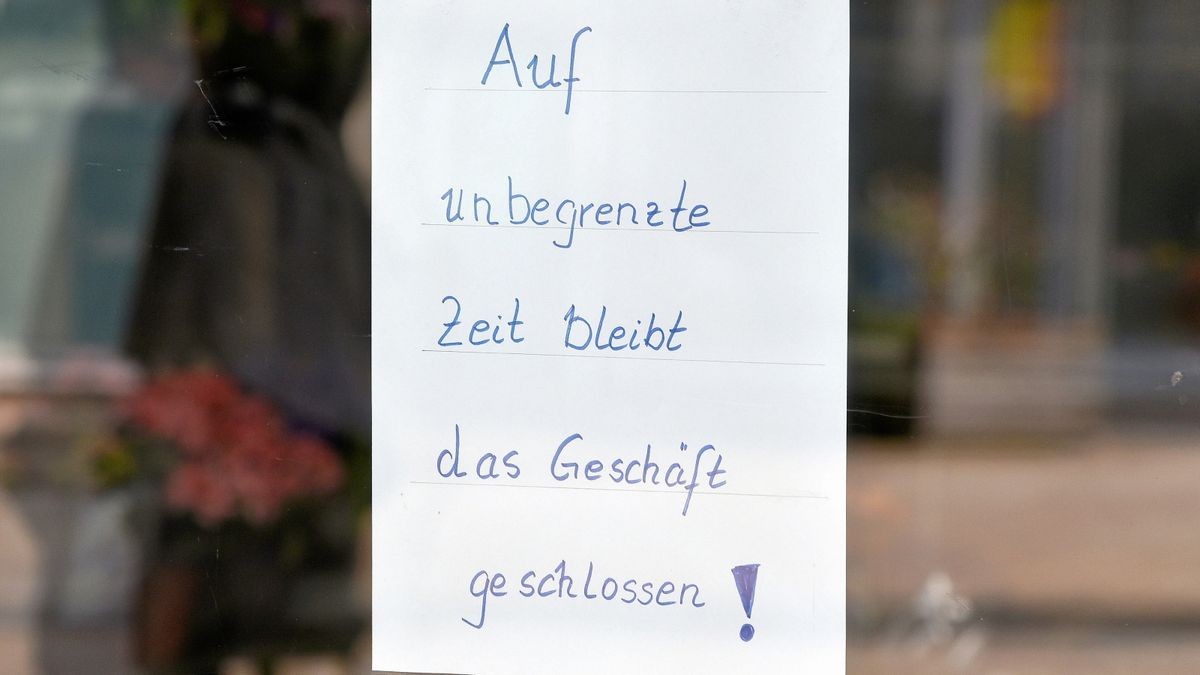 Auf
unbegrenzte
Zeit bleibt
das Geschäft
geschlossen!